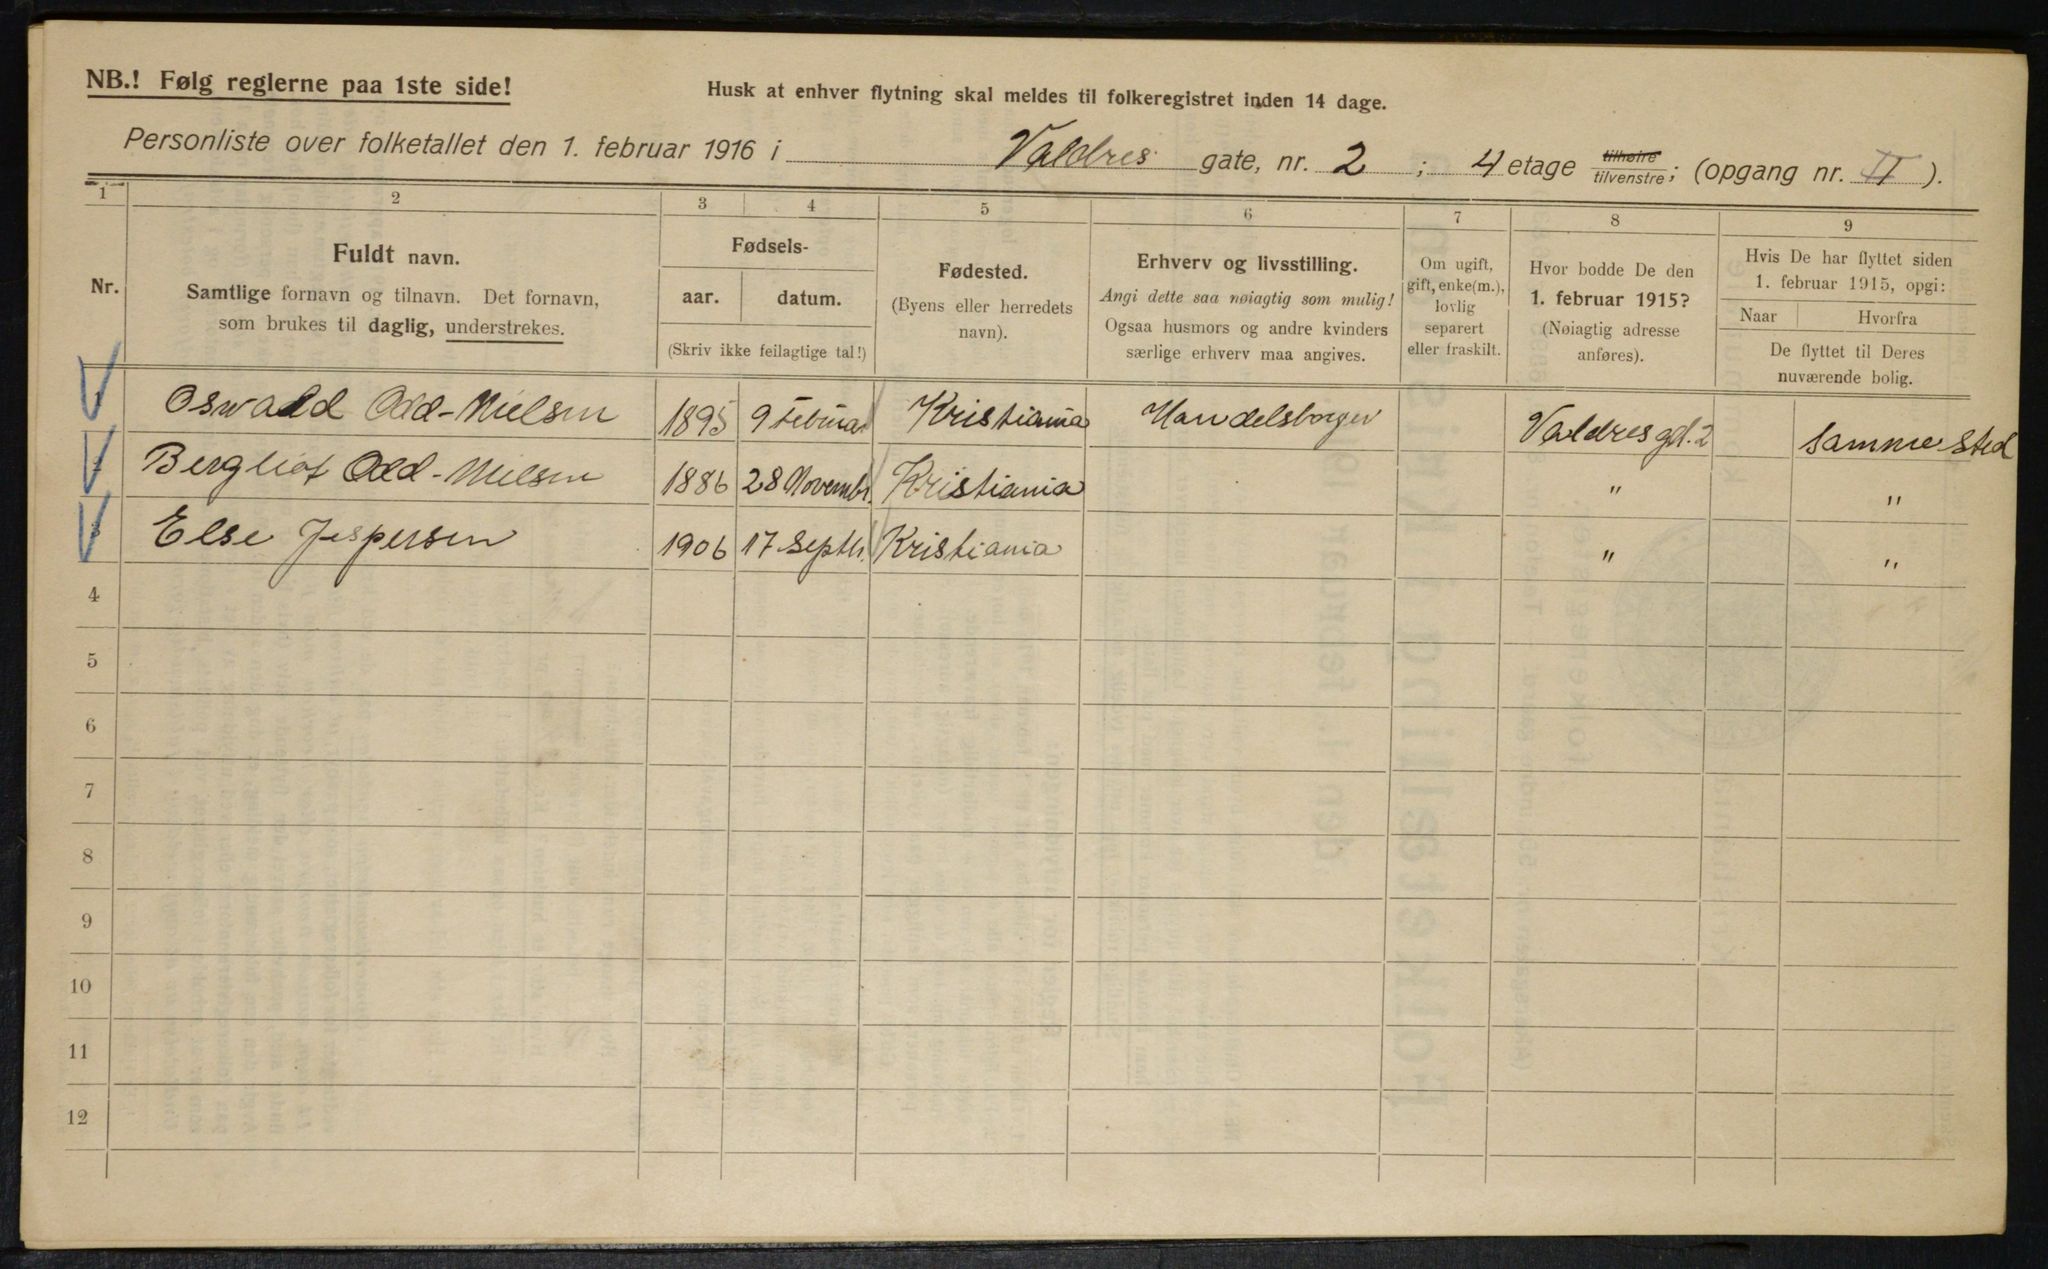 NB.! Følg reglerne paa 1ste side!
Husk at enhver flytning skal meldes til folkeregistret inden 14 dage.
Personliste over folketallet den 1. februar 1916 i Valdres gate, nr. 2 ; 4 etage tilhøire tilvenstre; (opgang nr. II ).
1 2 3 4 5 6 7 8 9
Nr.
Fuldt navn.
Samtlige fornavn og tilnavn. Det fornavn,
som brukes til daglig, understrekes.
Fødsels-
aar. datum.
(Skriv ikke feilagtige tal!)
Fødested.
(Byens eller herredets
navn).
Erhverv og livsstilling.
Angi dette saa nøiagtig som mulig!
Ogsaa husmors og andre kvinders
særlige erhverv maa angives.
Om ugift,
gift, enke(m.),
lovlig
separert
eller fraskilt.
Hvor bodde De den
1. februar 1915?
(Nøiagtig adresse
anføres).
Hvis De har flyttet siden
1. februar 1915, opgi:
Naar Hvorfra
De flyttet til Deres
nuværende bolig.
1 Oswald Odd-Nielsen 1895 9 Februar Kristiania Handelsborger Valdresgd. 2 samme sted
2 Bergliot Odd-Nielsen 1886 28 Novembr. Kristiania " "
3 Else Jespersen 1906 17 Septbr. Kristiania " "
4
5
6
7
8
9
10
11
12